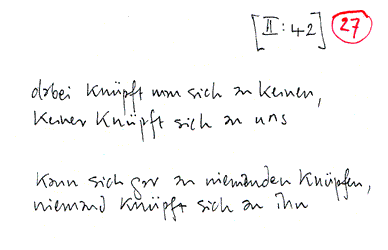 [II:42] 27
dabei knüpft man sich an keinen,
keiner knüpft sich an uns
kann sich gar an niemanden knüpfen,
niemand knüpft sich an ihn